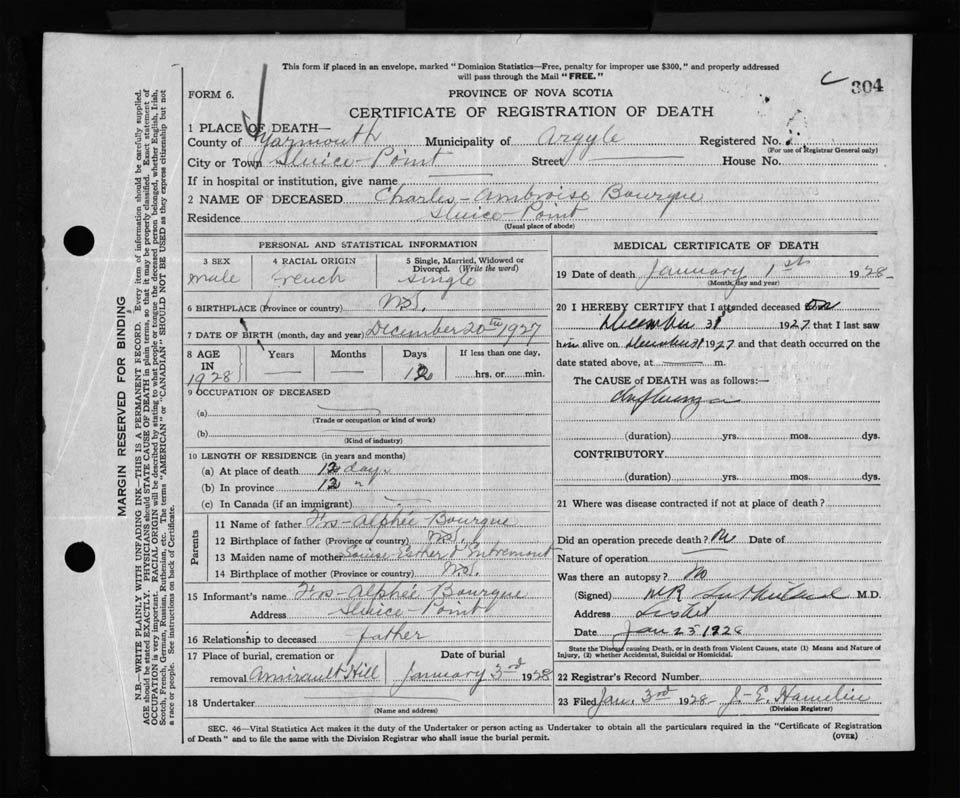 This form if placed in an envelope, marked "Dominion Statistics—Free, penalty for improper use $300," and properly addressed
will pass through the Mail "FREE."
304
FORM 6.
PROVINCE OF NOVA SCOTIA
CERTIFICATE OF REGISTRATION OF DEATH
1 PLACE OF DEATH—
County of Yarmouth Municipality of Argyle Registered No.
(For use of Registrar General only)
City or Town Sluice-Point Street House No.
If in hospital or institution, give name
2 NAME OF DECEASED Charles-Ambroise Bourque
Residence Sluice-Point
(Usual place of abode)
PERSONAL AND STATISTICAL INFORMATION
3 SEX 4 RACIAL ORIGIN 5 Single, Married, Widowed or Divorced. (Write the word)
male French Single
6 BIRTHPLACE (Province or country) N.S.
7 DATE OF BIRTH (month, day and year) December 20th 1927
8 AGE IN Years Months Days If less than one day,
1928 12 hrs. or min.
9 OCCUPATION OF DECEASED
(a)
(Trade or occupation or kind of work)
(b)
(Kind of industry)
10 LENGTH OF RESIDENCE (in years and months)
(a) At place of death 12 days
(b) In province 12 "
(c) In Canada (if an immigrant)
Parents
11 Name of father Frs-Alphée Bourque
12 Birthplace of father (Province or country) N.S.
13 Maiden name of mother Louise-Esther d'Entremont
14 Birthplace of mother (Province or country) N.S.
15 Informant's name Frs-Alphée Bourque
Address Sluice-Point
16 Relationship to deceased father
17 Place of burial, cremation or removal Date of burial
Amirault Hill January 3rd 1928
18 Undertaker
(Name and address)
MEDICAL CERTIFICATE OF DEATH
19 Date of death January 1st 1928
(Month, day and year)
20 I HEREBY CERTIFY that I attended deceased
December 31 1927 that I last saw
him alive on December 31 1927 and that death occurred on the
date stated above, at m.
The CAUSE of DEATH was as follows:—
Influenza
(duration) yrs. mos. dys.
CONTRIBUTORY
(duration) yrs. mos. dys.
21 Where was disease contracted if not at place of death?
Did an operation precede death? No Date of
Nature of operation
Was there an autopsy? No
(Signed) M.D.
Address
Date Jan 25 1928
State the Disease causing Death, or in death from Violent Causes, state (1) Means and Nature of
Injury, (2) whether Accidental, Suicidal or Homicidal.
22 Registrar's Record Number
23 Filed Jan. 3rd 1928 J. E. Hamelin
(Division Registrar)
SEC. 46—Vital Statistics Act makes it the duty of the Undertaker or person acting as Undertaker to obtain all the particulars required in the "Certificate of Registration
of Death" and to file the same with the Division Registrar who shall issue the burial permit.
(OVER)
MARGIN RESERVED FOR BINDING
N.B.—WRITE PLAINLY WITH UNFADING INK—THIS IS A PERMANENT RECORD. Every item of information should be carefully supplied.
AGE should be stated EXACTLY. PHYSICIANS should STATE CAUSE OF DEATH in plain terms, so that it may be properly classified. Exact statement of
OCCUPATION is very important. RACIAL ORIGIN will be described by stating to what people or tongue the deceased person belonged, whether English, Irish,
Scotch, French, German, Russian, Ruthenian, etc. The terms "AMERICAN" or "CANADIAN" SHOULD NOT BE USED as they express citizenship but not
a race or people. See instructions on back of Certificate.